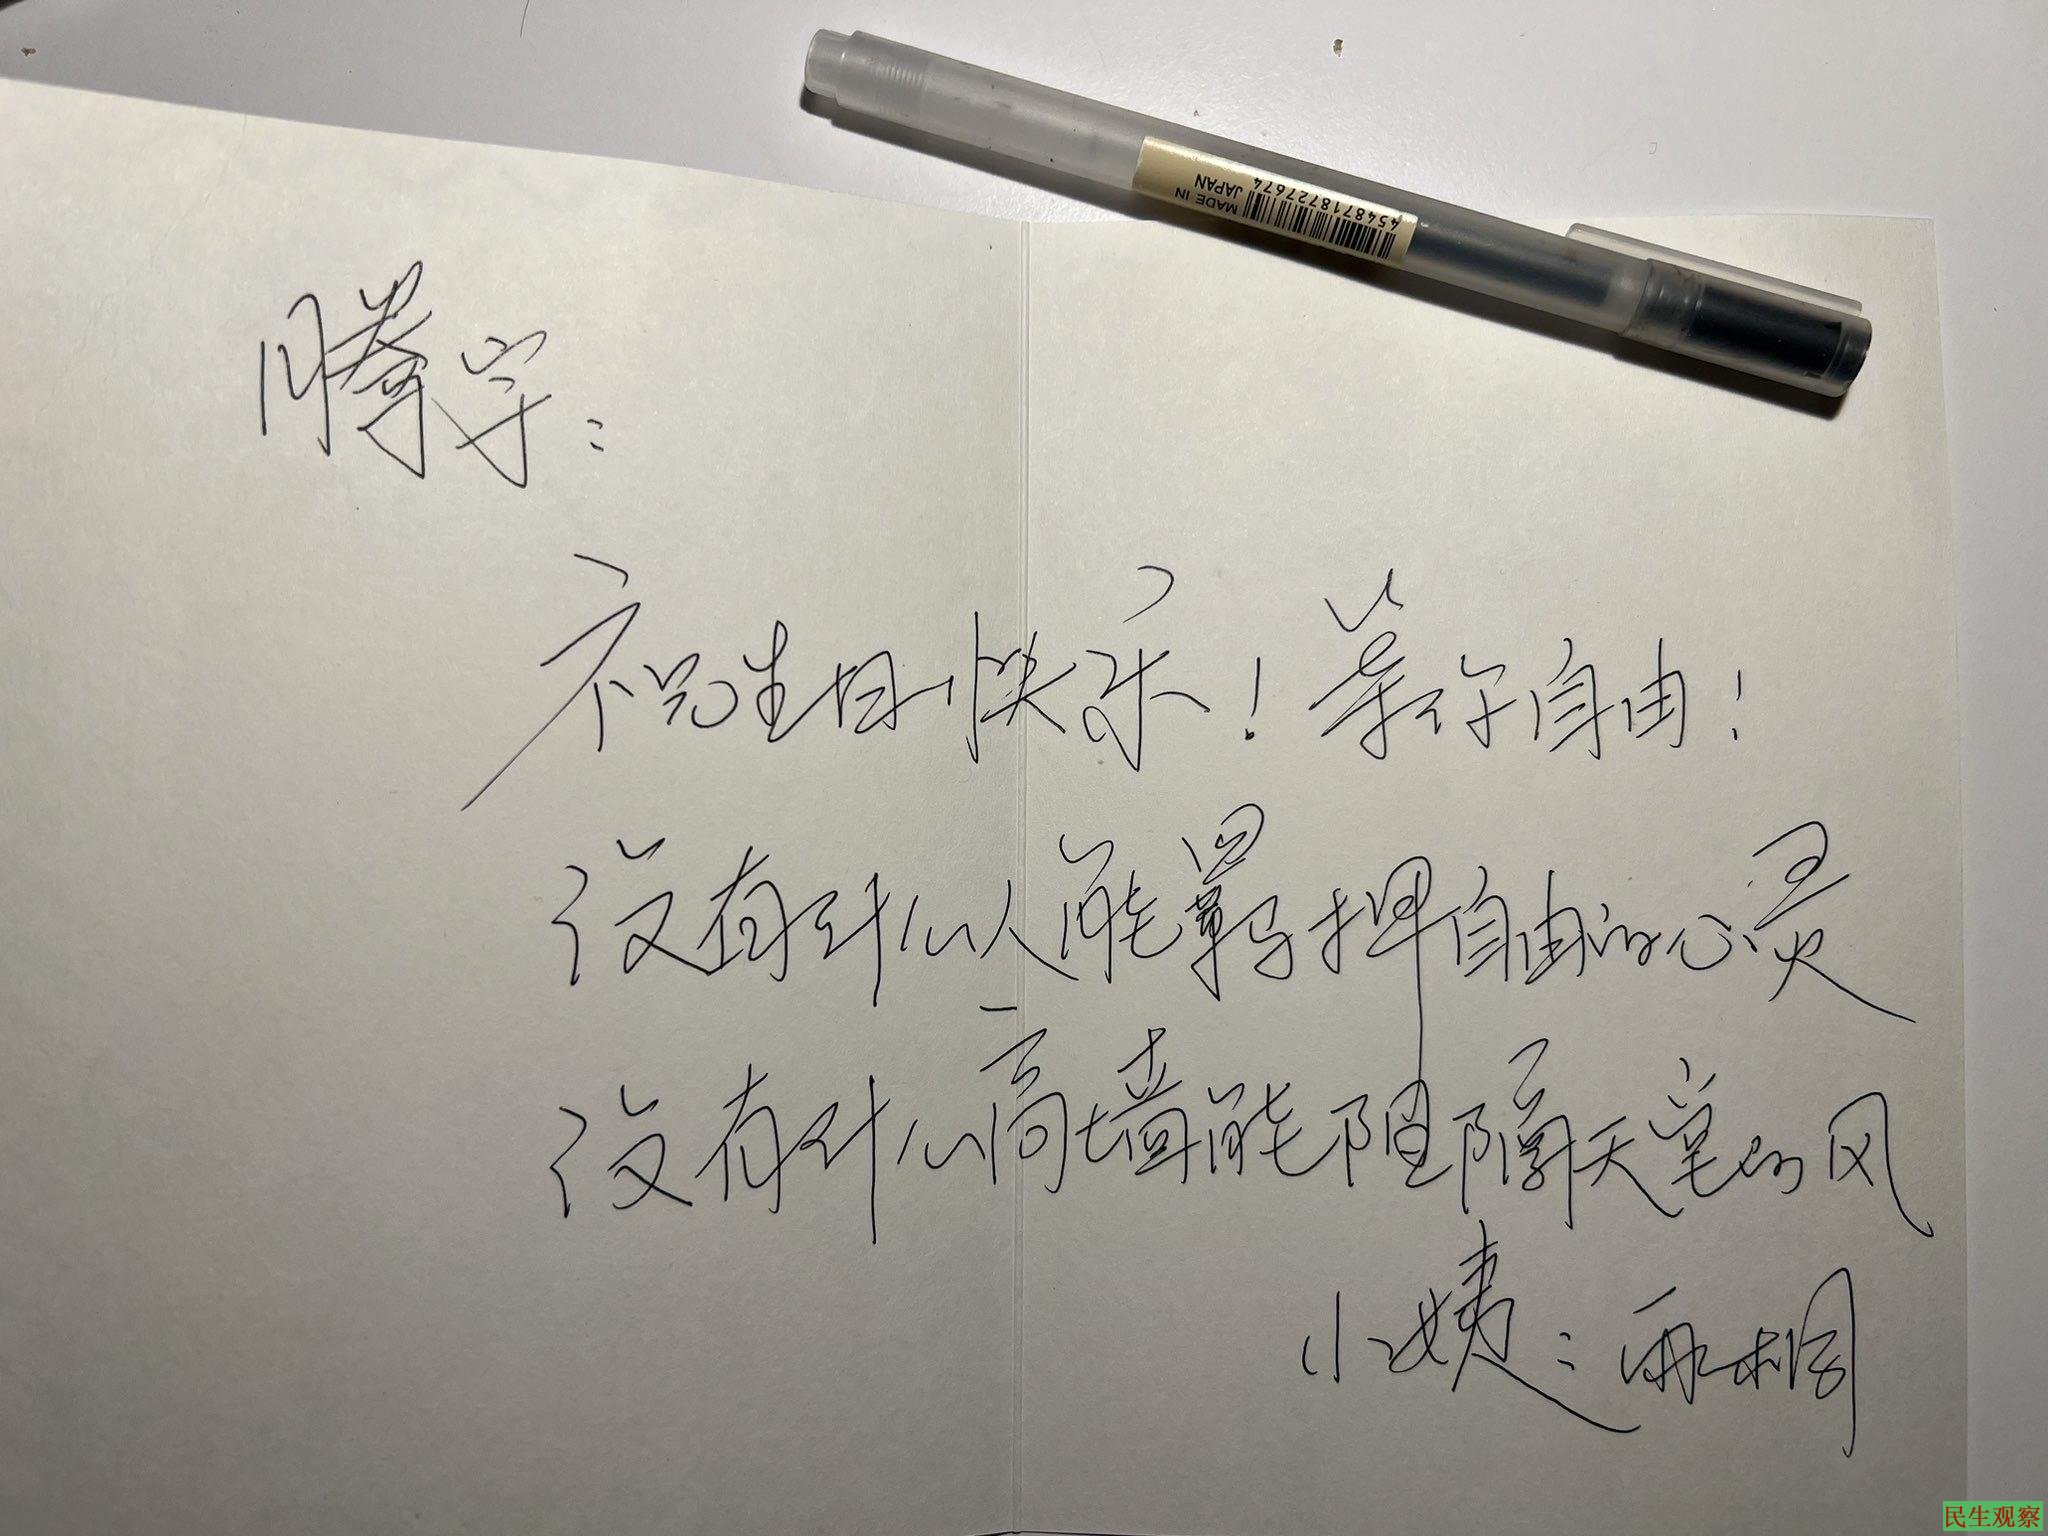 MADE IN
JAPAN
4548718727674
腾宇：
祝生日快乐！等你自由！
没有什么人能羁押自由的心灵
没有什么高墙能阻隔天堂的风
小姨：雨桐
民生观察